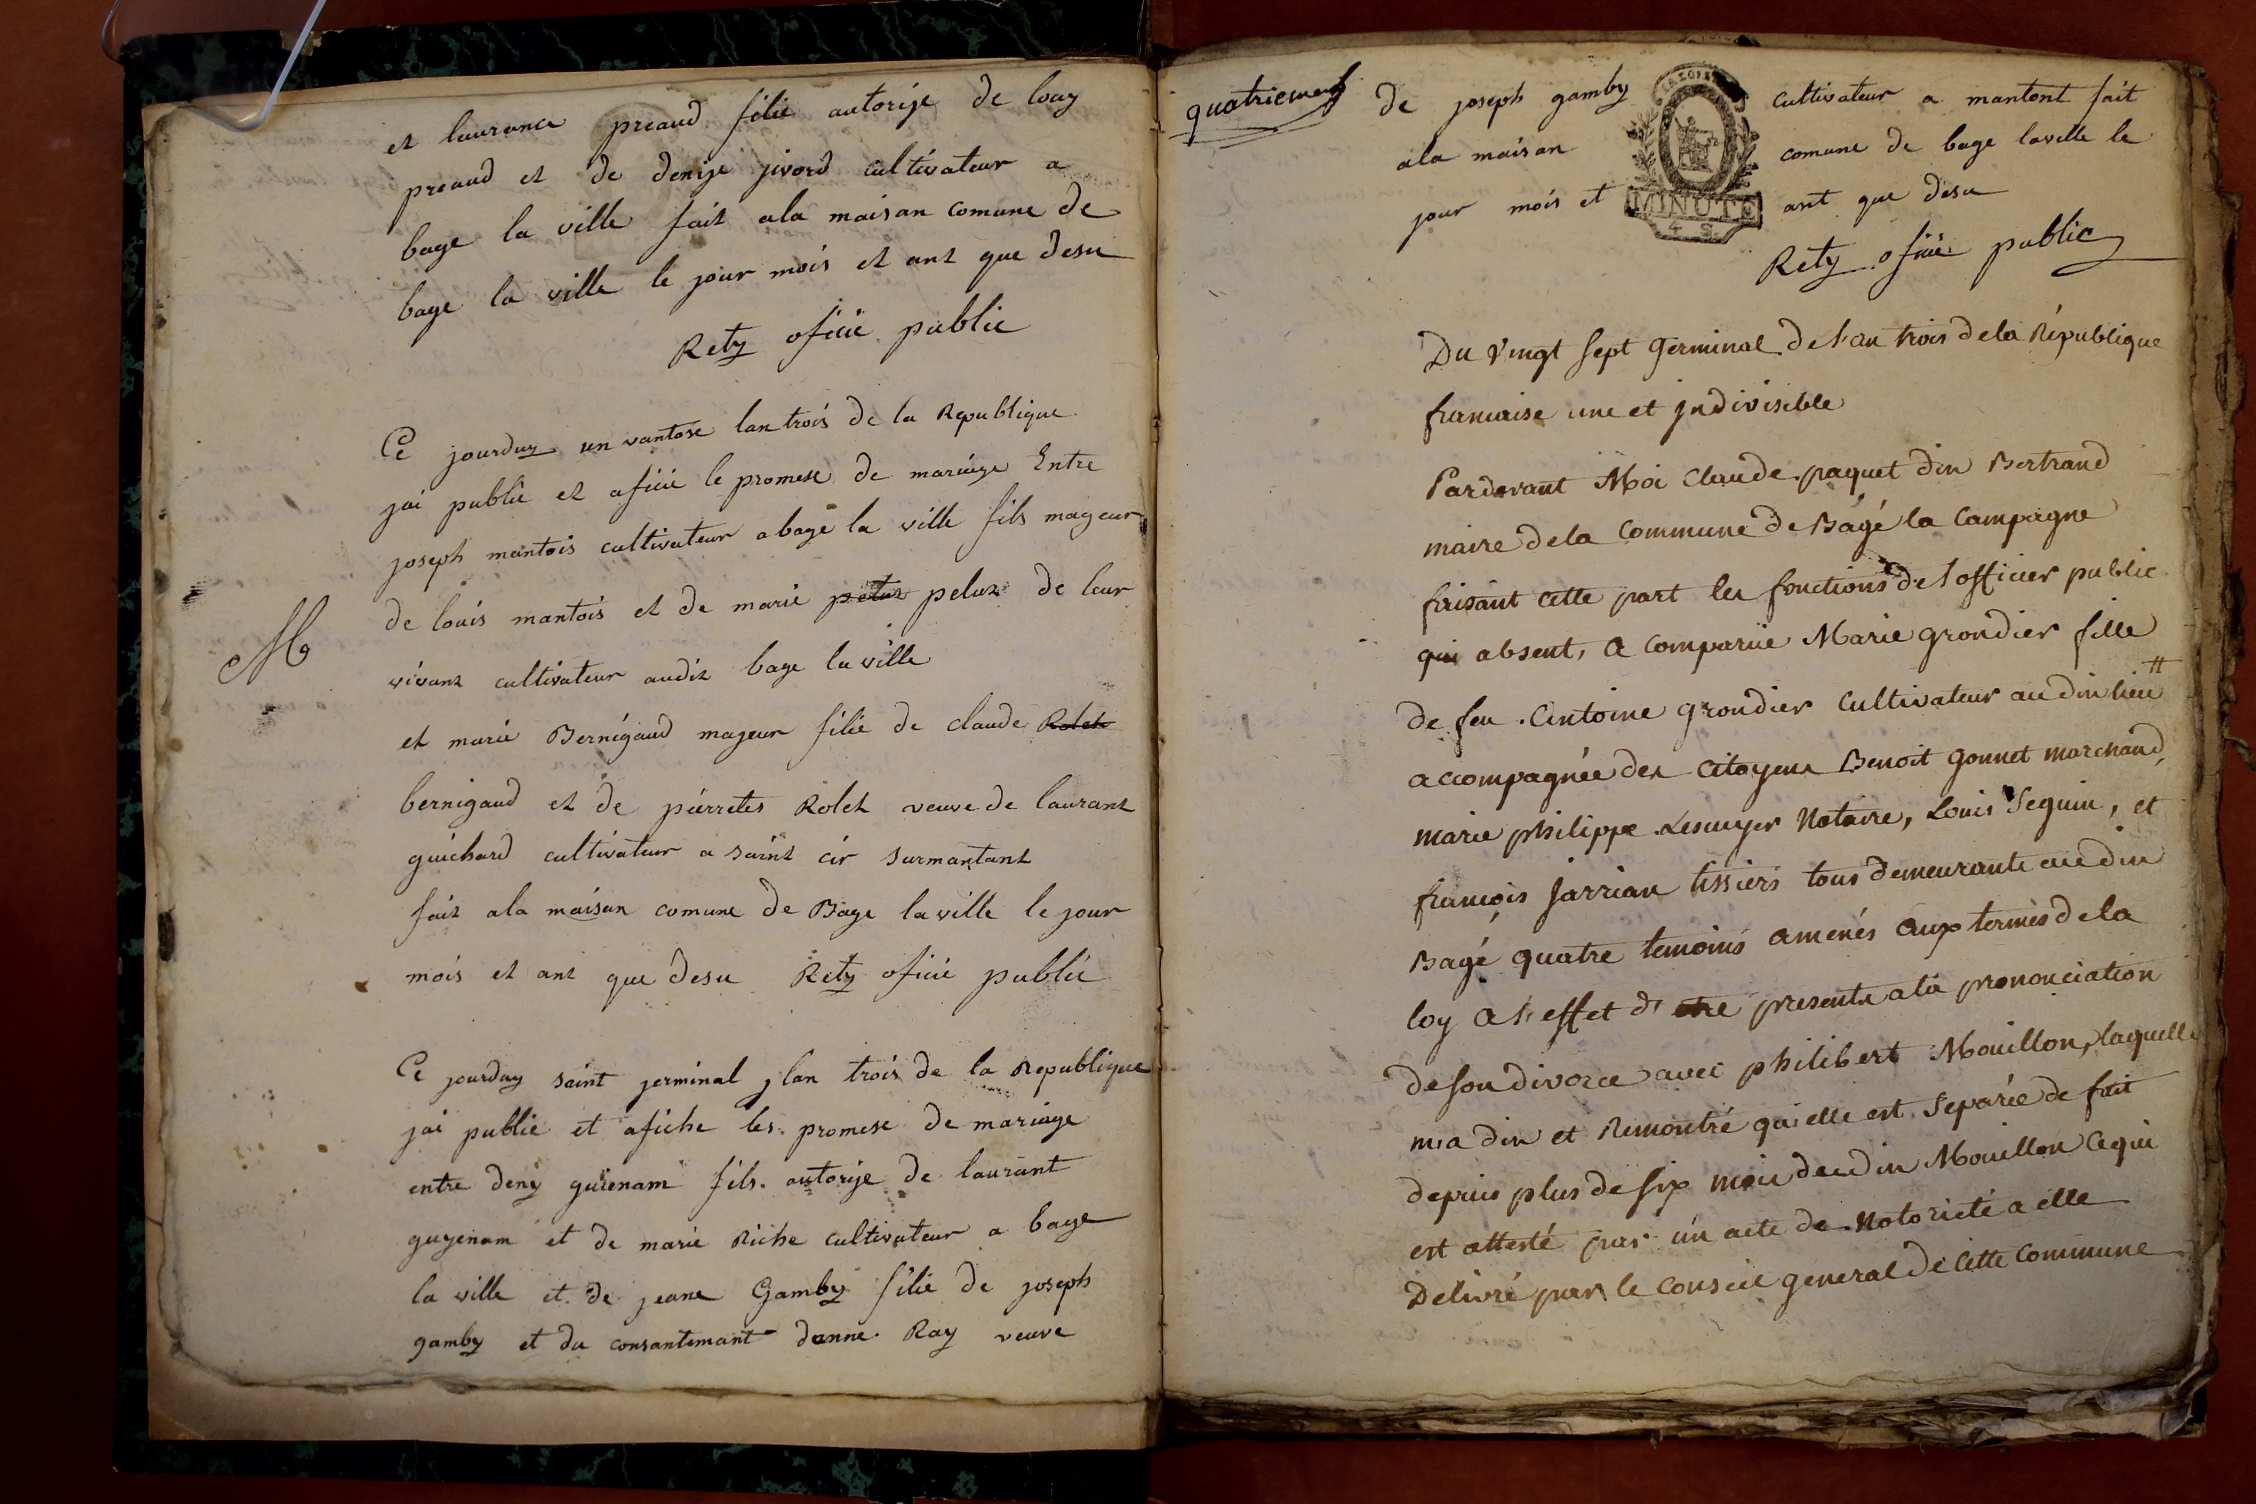 et laurance preaud filie autorise de louy
preaud et de denise jivord cultivateur a
bage la ville fait ala maison comune de
bage la ville le jour mois et ant que desu
Rety oficié public
Ce jourduy un vantose lan trois de la Republique
jai publié et aficié le promese de mariage Entre
joseph mantois cultivateur a bage la ville fils mageur
de louis mantois et de marie pelux de leur
M
vivant cultivateur audit bage la ville
et marie Bernigaud mageur filie de claude Rolet
bernigaud et de pierretes Rolet veuve de laurant
guichard cultivateur a saint cir surmantant
fait ala maison comune de Bage la ville le jour
mois et ant que desu Rety oficié public
Ce jourduy saint jerminal lan trois de la Republique
jai publié et afiche les promese de mariage
entre deny guienam fils autorise de laurant
guyenam et de marie Riche cultivateur a bage
la ville et de jeane Gamby filie de joseph
gamby et du consantemant danne Ray veuve
quatriement
de joseph gamby cultivateur a mantont fait
ala maison comune de bage laville le
jour mois et ant que desu
MINUTE
4 S.
Rety oficié public
Du Vingt Sept Germinal de l'an trois dela République
francaise une et jndivisible
Pardevant Moi Claude paquet din Bertrand
maire dela Commune de Bâgé la Campagne
faisant cette part les fonctions de l'officier public
qui absent, a comparue Marie grondier fille
de feu Antoine grondier Cultivateur au din lieu #
accompagnée des Citoyens Benoit Gonnet marchand,
marie philippe Lescuyer Notaire, Louis Seguin, et
françois Jarrian tissiers tous demeurants au din
Bagé quatre temoins amenés aux termes de la
loy a l'effet d'etre presents ala prononciation
de son divorce avec philibert Mouillon, laquelle
m'a din et Remontré qu'elle est Separée de fait
depuis plus de six mois dudin Mouillon ce qui
est attesté par un acte de Notorieté a elle
Delivré par le conseil general de cette commune